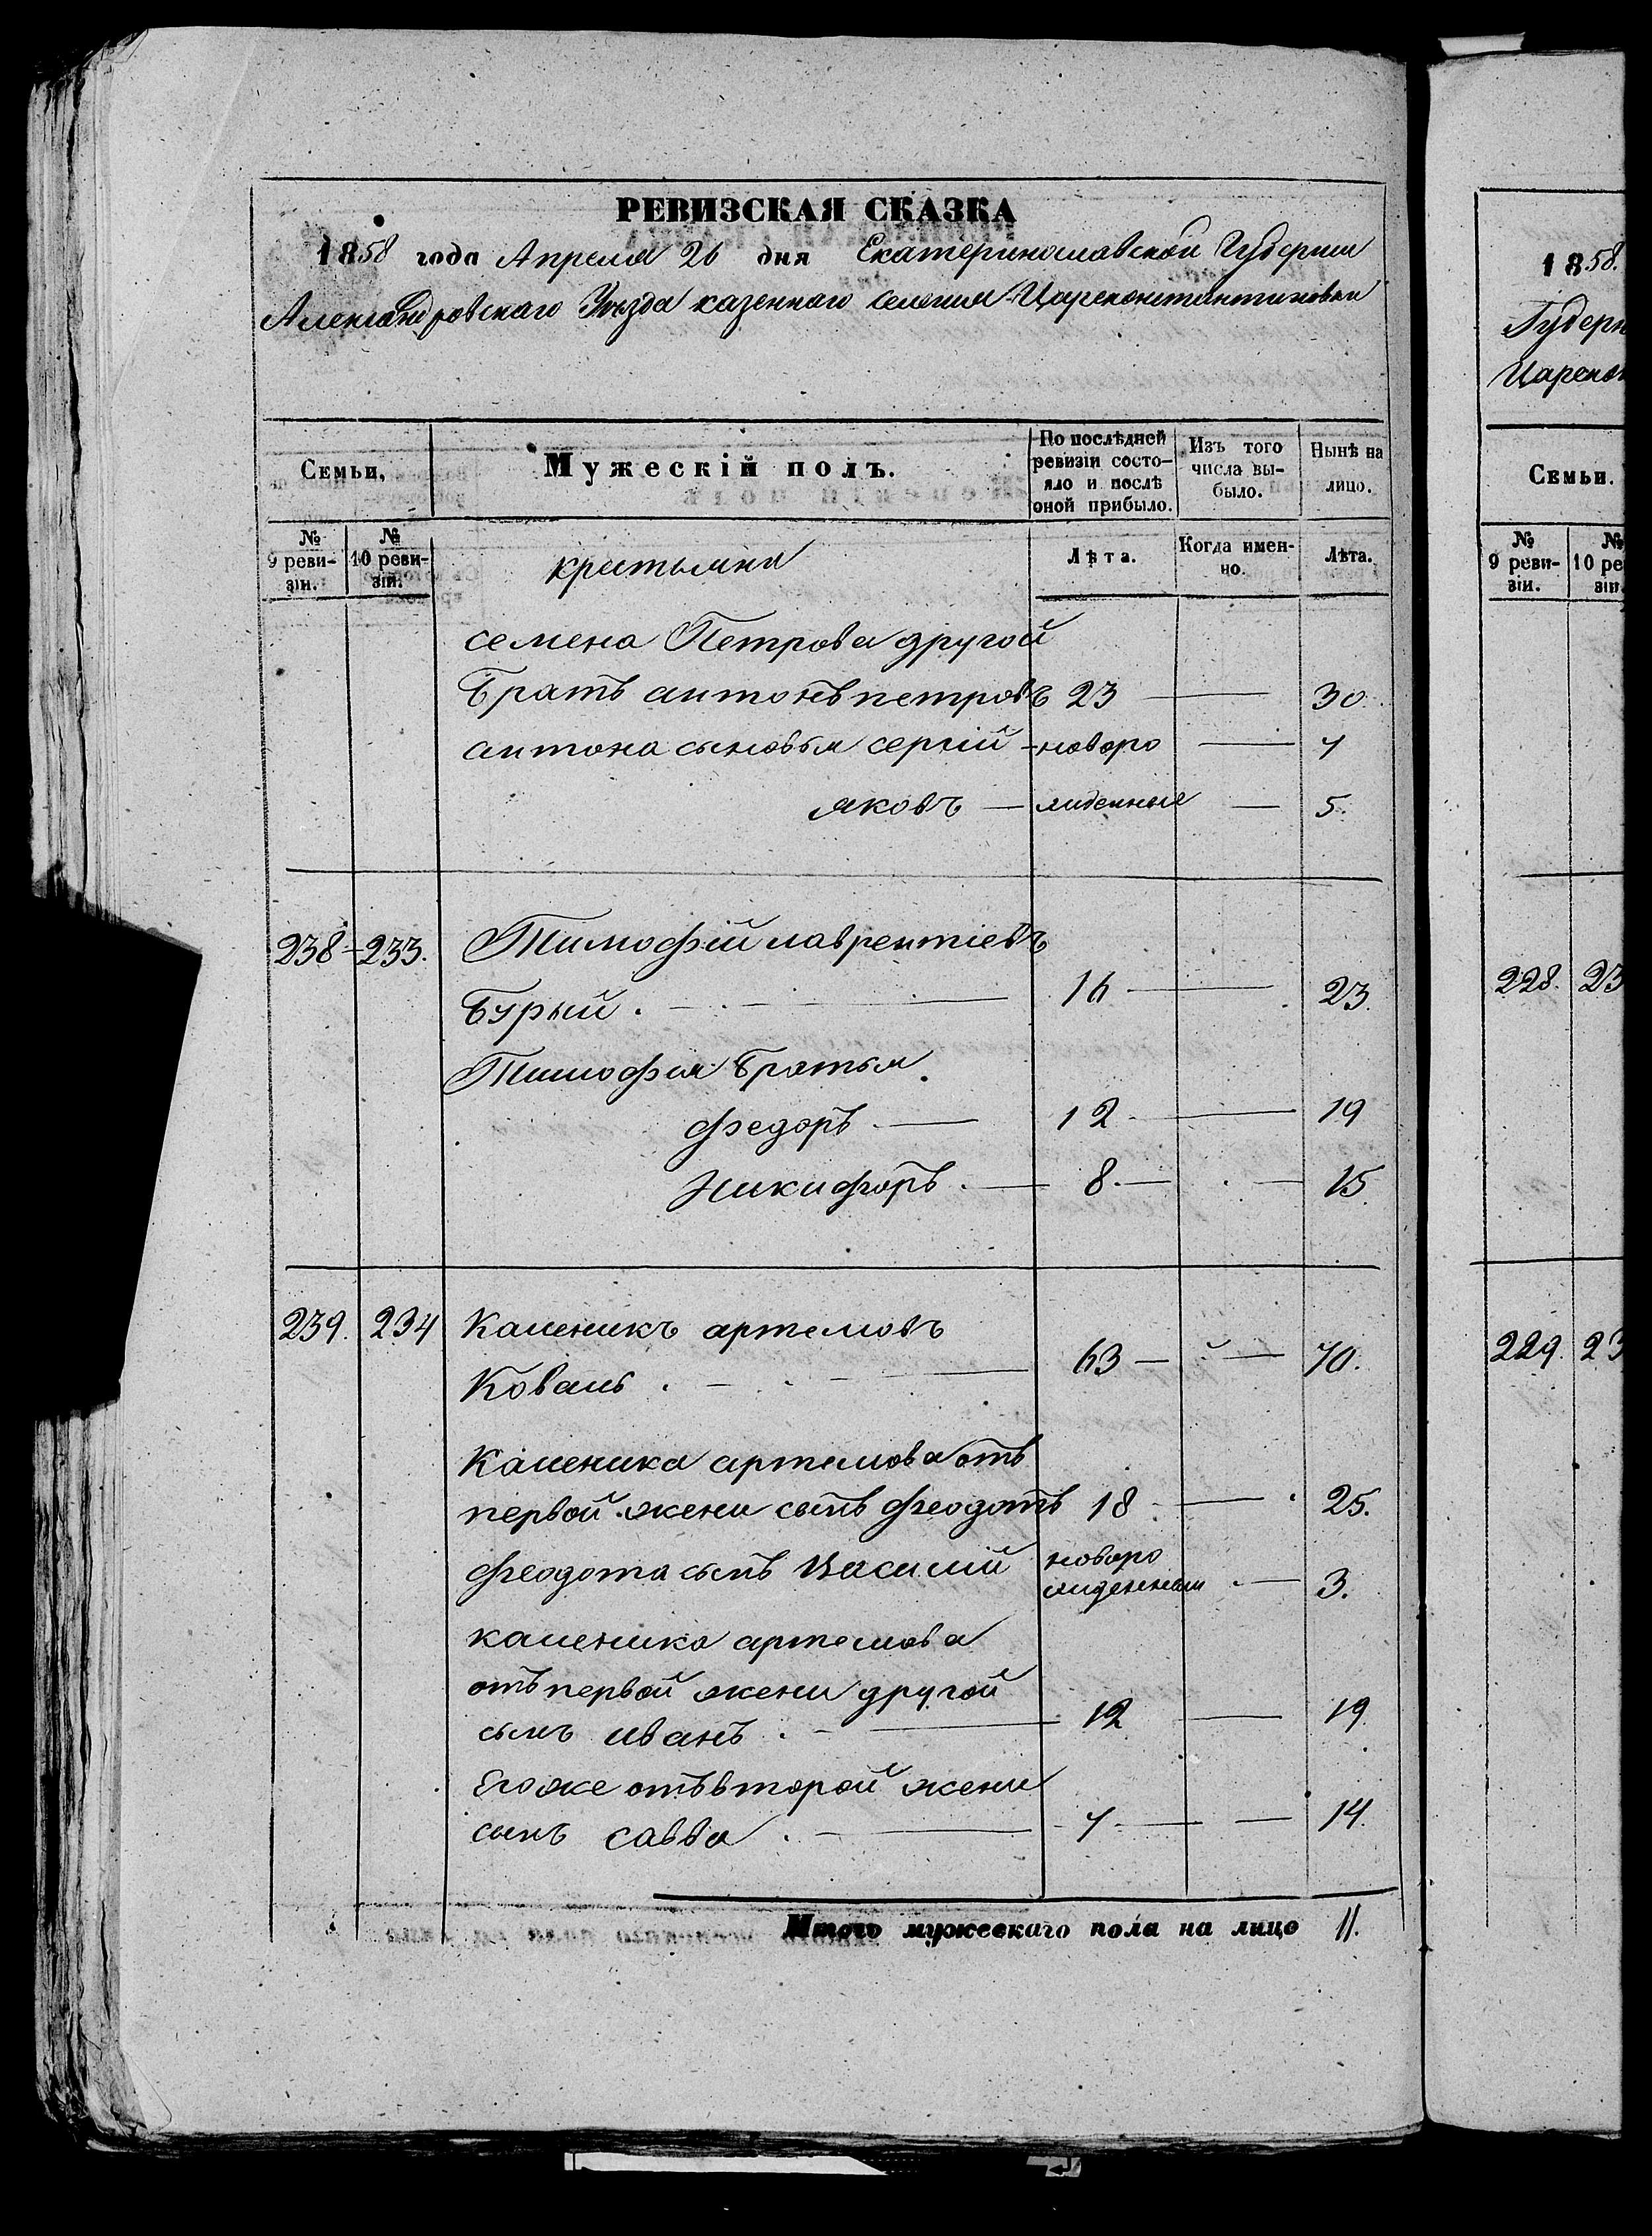 РЕВИЗСКАЯ СКАЗКА
1858 года Апреля 26 дня Екатеринославской Губернии
Александровскаго Уѣзда казеннаго селения Цареконстантиновки
Семьи,
Мужескій полъ.
По послѣдней ревизіи состо-
яло и послѣ
оной прибыло.
Изъ того
числа вы-
было.
Нынѣ на
лицо.
№ 9 реви-
зіи.
№ 10 реви-
зіи.
крестьяня
Лѣта.
Когда имен-
но.
Лѣта.
семена Петрова другой
братъ антонъ петровъ 23 — 30
антона сыновья сергій - новоро — 7
яковъ — жденные — 5.
238 - 233. Тимофій лаврентіевъ
Бурый . — 16 — 23.
Тимофия братья
федоръ . — 12 — 19
Никифоръ . — 8 — 15
239. 234 Каленикъ артемовъ
Коваль . — 63 — 70.
Каленика артемова отъ
первой жени сынъ феодотъ 18 — 25.
феодота сынъ Василій новоро
жденный — 3.
каленика артемова
отъ первой жени другой
сынъ иванъ . — 12 — 19.
Егоже отъ второй жени
сынъ савва . — 7 — 14.
Итого мужескаго пола на лицо 11.
1858.
Губерн
Царекон
Семьи.
№ 9 реви-
зіи.
№ 10 ре
зіи
228. 23
229. 23